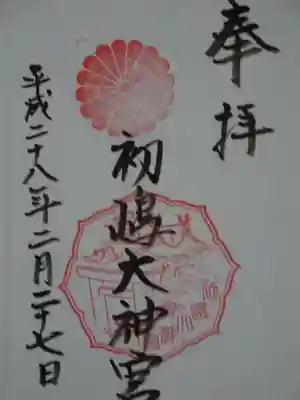 奉拝
初嶋大神宮
平成二十八年二月二十七日